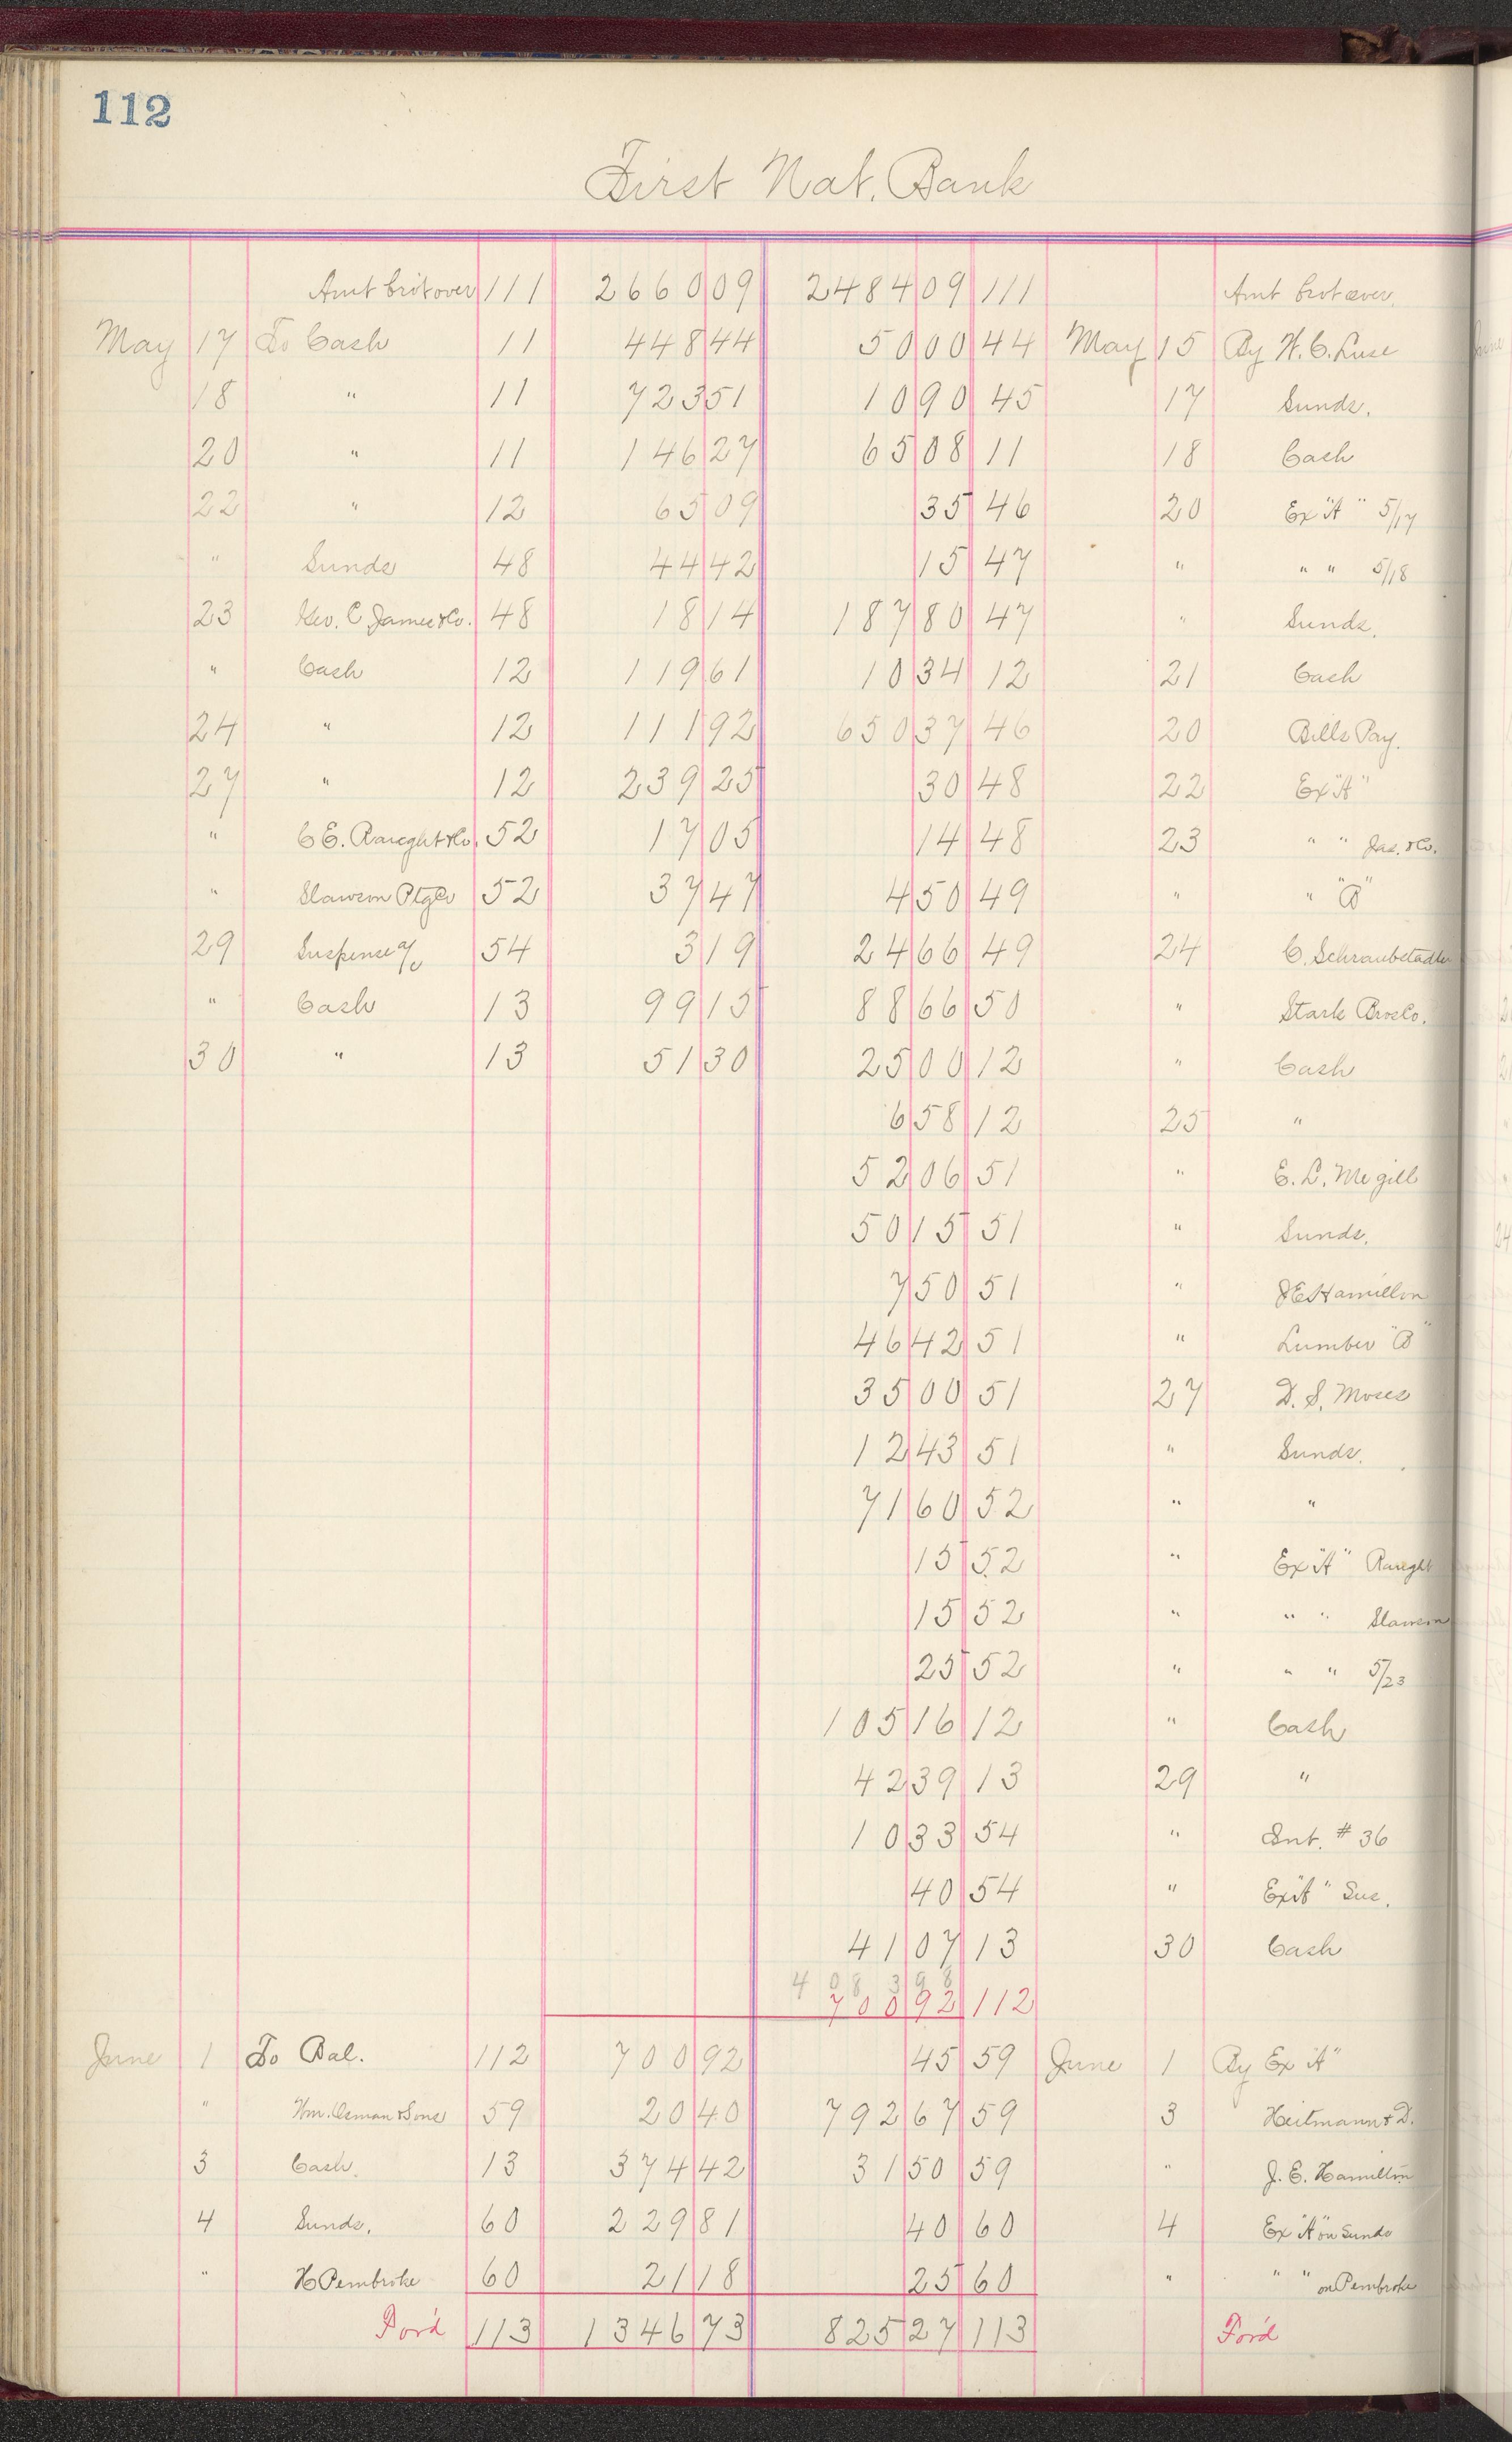 112
First Nat. Bank
Amt brôt over 111 2660 09 2484 09 111 Amt brot over.
May 17 To Cash 11 448 44 50 00 44 May 15 By H. C. Luse
18 " 11 723 51 10 90 45 17 Sunds.
20 " 11 146 27 65 08 11 18 Cash
22 " 12 65 09 35 46 20 Ex "A" 5/17
" Sunds 48 44 42 15 47 " " " 5/18
23 Geo. C James & Co. 48 18 14 187 80 47 " Sunds.
" Cash 12 119 61 10 34 12 21 Cash
24 " 12 111 92 650 37 46 20 Bills Pay.
27 " 12 239 25 30 48 22 Ex "A"
" C E. Raught & Co. 52 17 05 14 48 23 " " Jas. & Co.
" Slawson Ptg Co 52 37 47 4 50 49 " " "B"
29 Suspense a/c 54 3 19 24 66 49 24 C. Schraubstadter
" Cash 13 99 15 88 66 50 " Stark Bros Co.
30 " 13 51 30 25 00 12 " Cash
6 58 12 25 "
52 06 51 " E. L. Megill
50 15 51 " Sunds.
7 50 51 " J E Hamilton
46 42 51 " Lumber "B"
35 00 51 27 D. S. Moses
12 43 51 " Sunds.
71 60 52 " "
15 52 " Ex "A" Raught
15 52 " " " Slawson
25 52 " " " 5/23
105 16 12 " Cash
42 39 13 29 "
10 33 54 " Int. # 36
40 54 " Ex "A" Sus.
41 07 13 30 Cash
4 08 3 98
700 92 112
June 1 To Bal. 112 700 92 45 59 June 1 By Ex "A"
" Wm. Osman & Sons 59 20 40 792 67 59 3 Heitmann & D.
3 Cash. 13 374 42 31 50 59 " J. E. Hamilton
4 Sunds. 60 229 81 40 60 4 Ex "A" on Sunds
" H Pembroke 60 21 18 25 60 " " " on Pembroke
For'd 113 1346 73 825 27 113 For'd